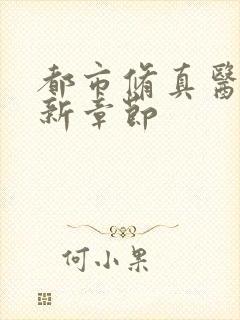 都市脩真醫
新章節
何小果